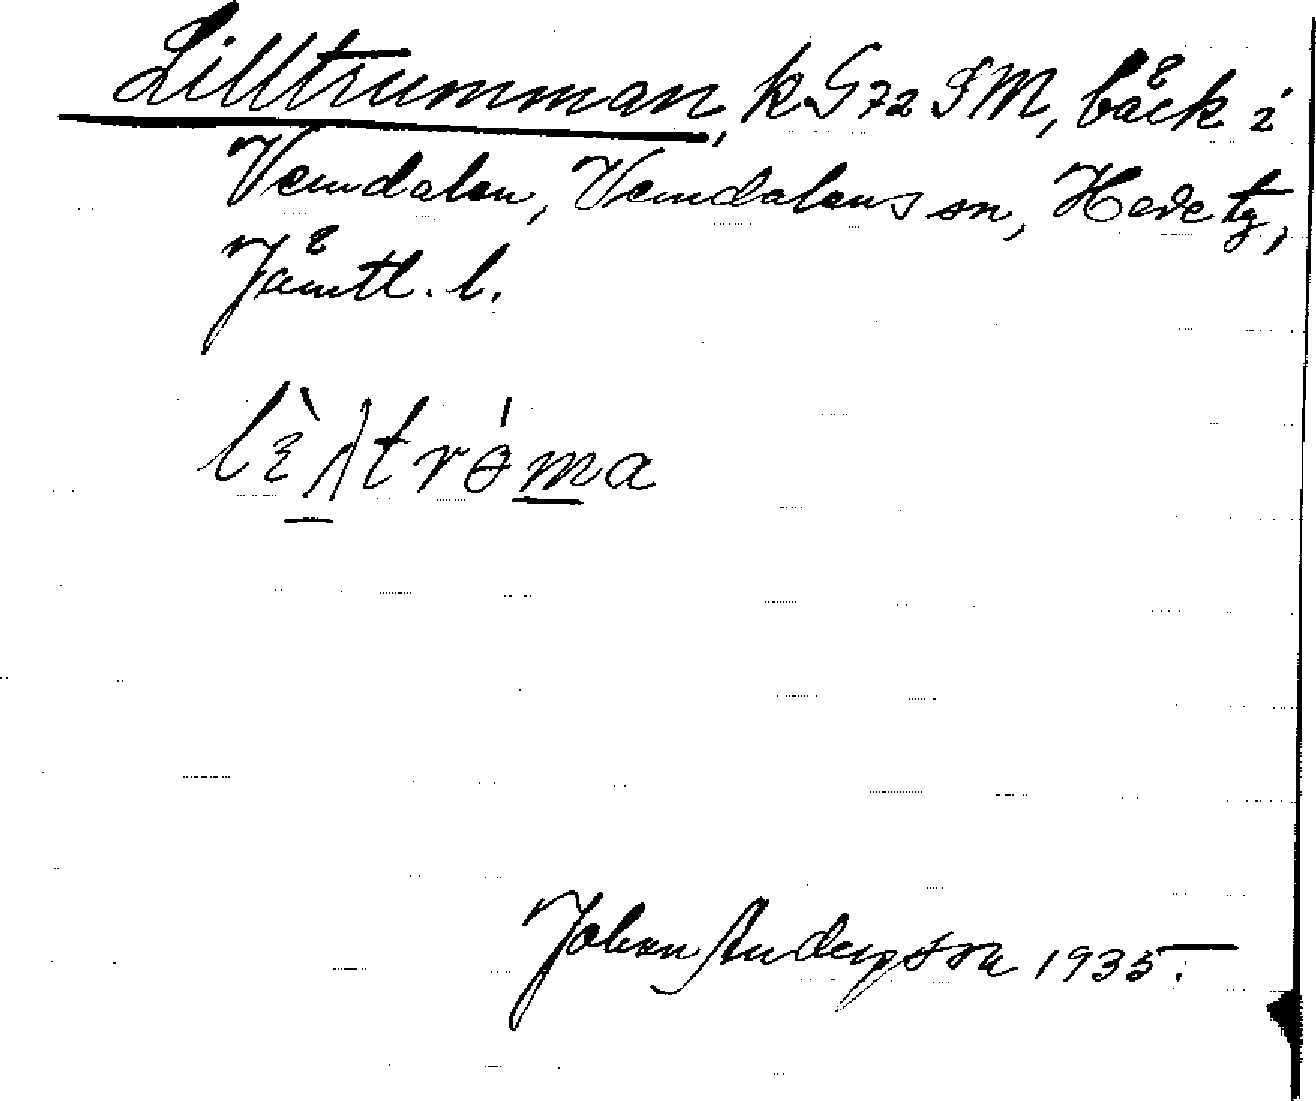 Lilltrumman, k. G 72 SM, bäck i
Vemdalen, Vemdalens sn, Hede tg,
Jämtl. l.
Johan Anderson 1935.